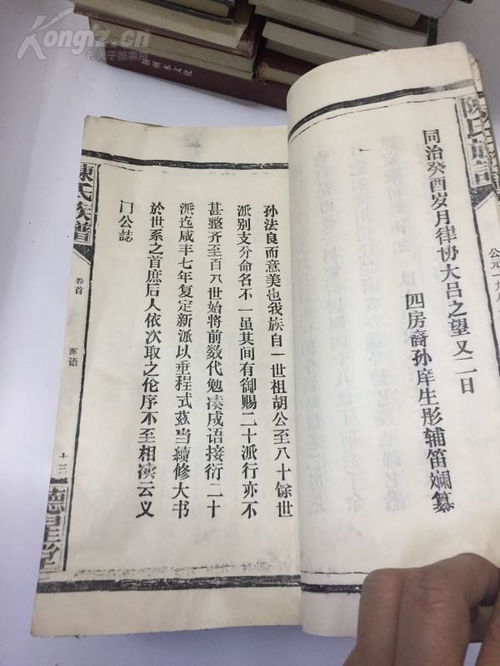 Kongfz.cn
孔夫子拍卖网
同治癸酉岁月律协大吕之望又二日
四房裔孙庠生彤辅笛斓纂
陳氏族譜
公元一九
孙法良而意美也我族自一世祖胡公至八十馀世
派别支分命名不一虽其间有御赐二十派行亦不
甚整齐至百八世始将前数代勉凑成语接衍二十
派迄咸丰七年复定新派以垂程式茲当續修大书
於世系之首庶后人依次取之伦序不至相淡云义
门公誌
陳氏族譜
卷首
派语
十三
德星堂